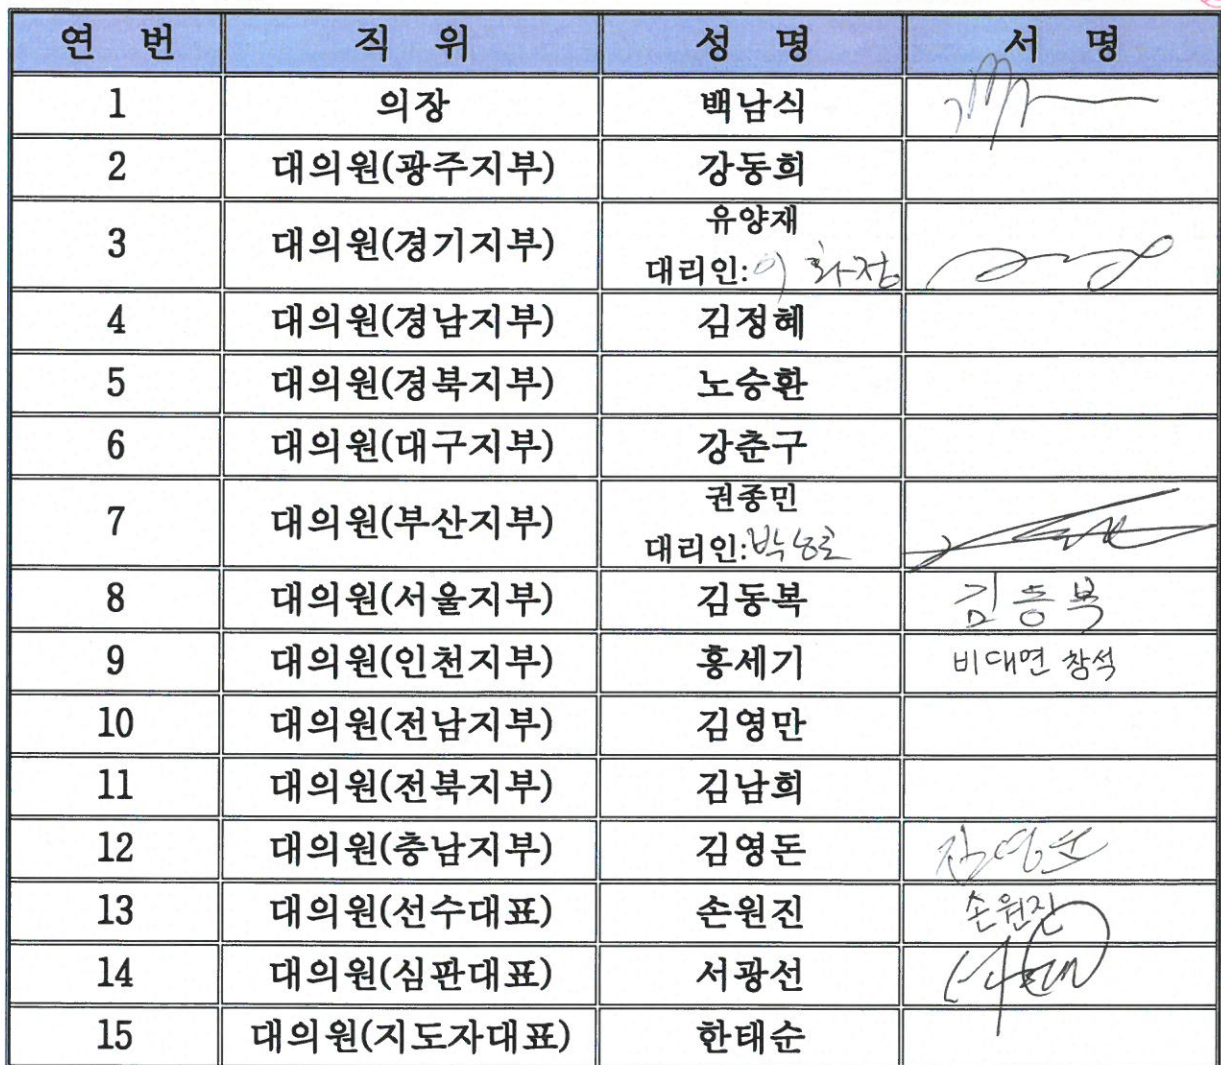 연 번 직 위 성 명 서 명
1 의장 백남식
2 대의원(광주지부) 강동희
3 대의원(경기지부) 유양재
대리인: 이화정
4 대의원(경남지부) 김정혜
5 대의원(경북지부) 노승환
6 대의원(대구지부) 강춘구
7 대의원(부산지부) 권종민
대리인:
8 대의원(서울지부) 김동복 김동복
9 대의원(인천지부) 홍세기 비대면 참석
10 대의원(전남지부) 김영만
11 대의원(전북지부) 김남희
12 대의원(충남지부) 김영돈
13 대의원(선수대표) 손원진 손원진
14 대의원(심판대표) 서광선
15 대의원(지도자대표) 한태순